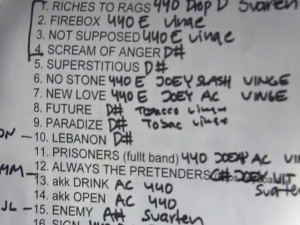 1. RICHES TO RAGS 440 Drop D Svarten
2. FIREBOX 440 E vinge
3. NOT SUPPOSED 440 E vinge
4. SCREAM OF ANGER D#
5. SUPERSTITIOUS D#
6. NO STONE 440 E JOEY SLASH VINGE
7. NEW LOVE 440 E JOEY AC VINGE
8. FUTURE D# Tobacco
9. PARADIZE D# Tobac
ON - 10. LEBANON D#
11. PRISONERS (fullt band) 440 JOEY AC VIN
MM - 12. ALWAYS THE PRETENDERS C# JOEY
13. akk DRINK AC 440 Svarten
14. akk OPEN AC 440
JL - 15. ENEMY A# Svarten
16. SIGN 440